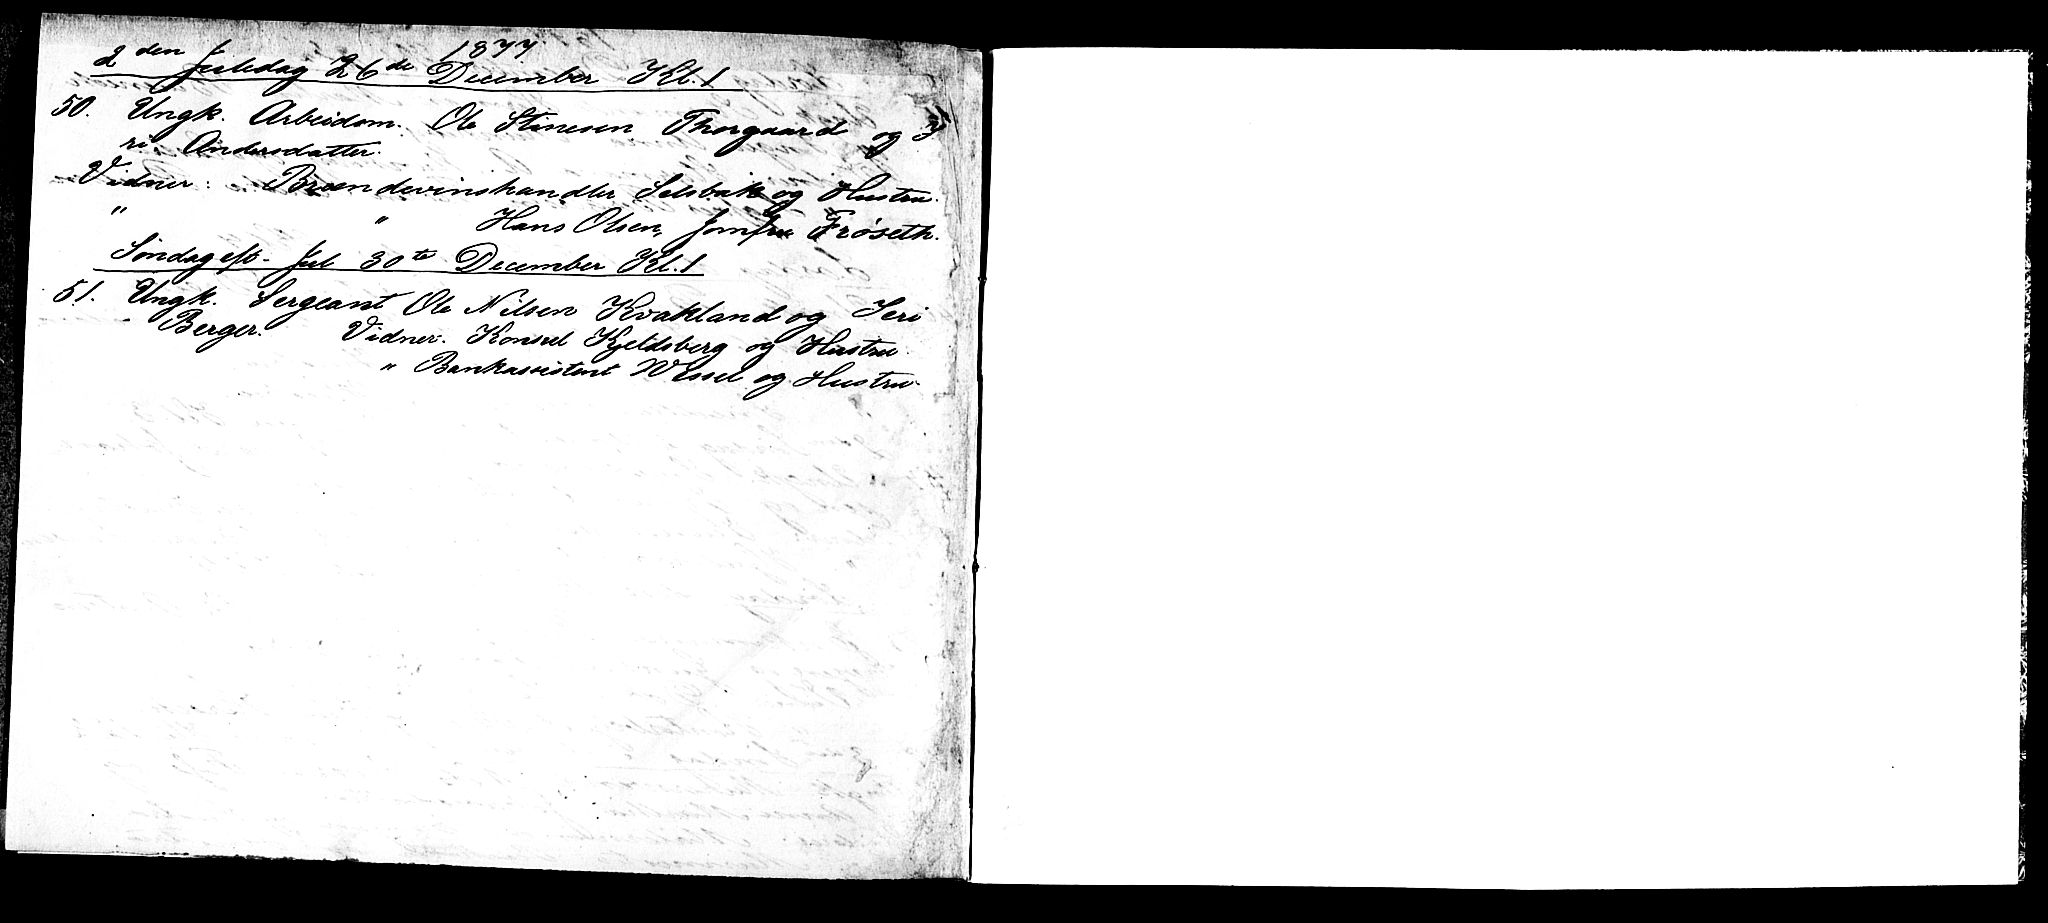 1877
2den Juledag 26de December Kl. 1
50. Ungk. Arbeidsm. Ole Stinesen Thorgaard og I
ri Andersdatter.
Vidner: Brændevinshandler Selsbak og Hustru.
" " Hans Olsen, Jomfru Frøseth.
Søndag eft. Jul 30te December Kl. 1
51. Ungk. Sergeant Ole Nilsen Kvakland og Seri
Berger. Vidner. Konsul Kjeldsberg og Hustru.
" Bankassistent Wessel og Hustru.